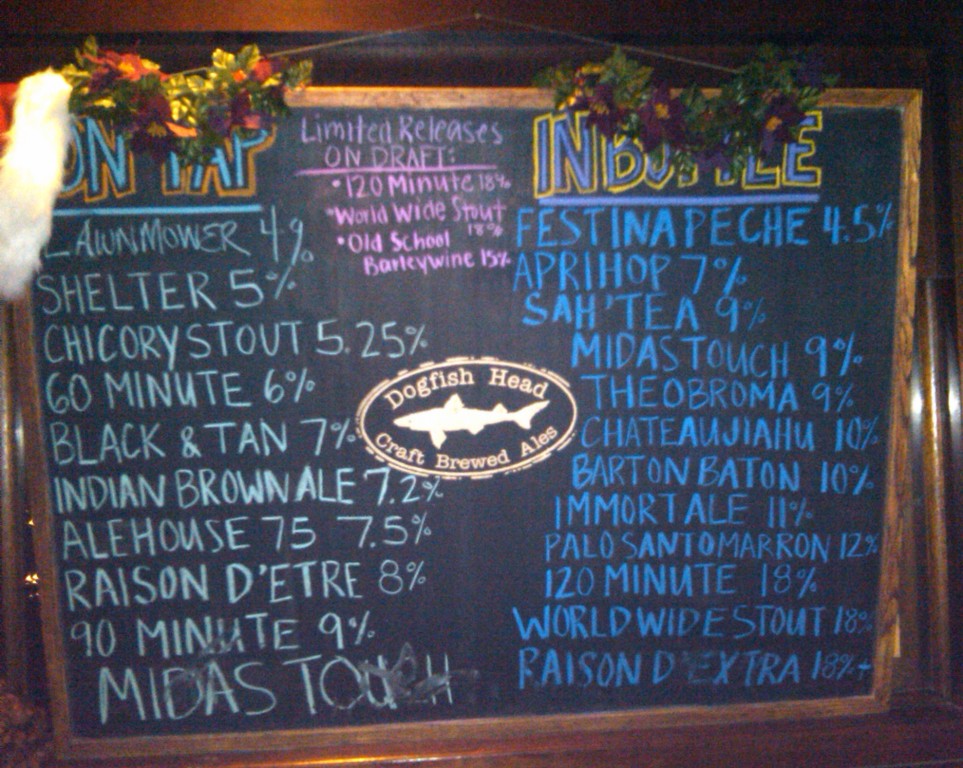 ON TAP
LAWNMOWER 4%
SHELTER 5%
CHICORY STOUT 5.25%
60 MINUTE 6%
BLACK & TAN 7%
INDIAN BROWN ALE 7.2%
ALEHOUSE 75 7.5%
RAISON D'ETRE 8%
90 MINUTE 9%
MIDAS TOUCH
Limited Releases
ON DRAFT:
•120 Minute 18%
•World Wide Stout
18%
•Old School
Barleywine 15%
Dogfish Head
Craft Brewed Ales
IN BOTTLE
FESTINA PECHE 4.5%
APRIHOP 7%
SAH'TEA 9%
MIDAS TOUCH 9%
THEOBROMA 9%
CHATEAU JIAHU 10%
BARTON BATON 10%
IMMORT ALE 11%
PALO SANTO MARRON 12%
120 MINUTE 18%
WORLD WIDE STOUT 18%
RAISON D'EXTRA 18%+